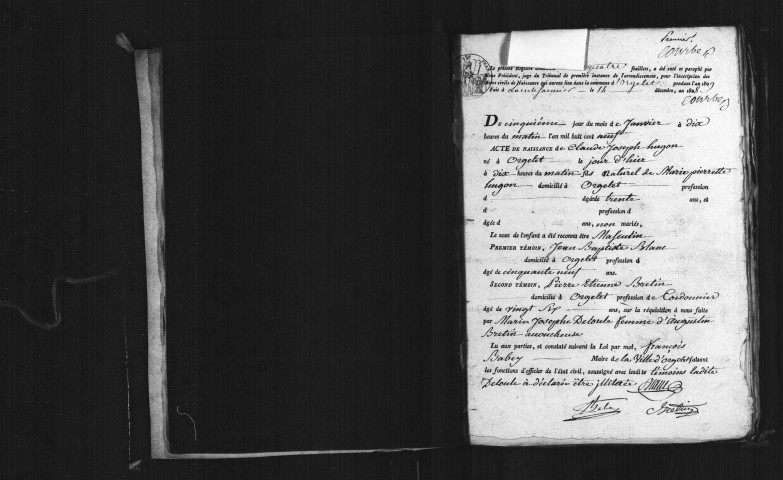 Premier.
Courbe
Le présent Registre quatre feuillets, a été coté et paraphé par
Nous Président, juge du Tribunal de première instance de l'arrondissement, pour l'inscription des
Actes civils de Naissance qui auront lieu dans la commune d'Orgelet pendant l'an 1809
Fait à Lons-le-saunier le 14 décembre, an 1808
Courbe
Du cinquième jour du mois de Janvier à dix
heures du matin l'an mil huit cent neuf
ACTE DE NAISSANCE de Claude Joseph hugon
né à Orgelet le jour d'hier
à dix heures du matin fils naturel de Marie pierrette
hugon domicilié à Orgelet profession
d âgé de trente ans, et
d profession d
âgée d ans, non mariés,
Le sexe de l'enfant a été reconnu être Masculin
PREMIER TÉMOIN, Jean Baptiste Blanc
domicilié à Orgelet profession d
âgé de cinquante neuf ans.
SECOND TÉMOIN, Pierre Etienne Bretin
domicilié à Orgelet profession de Cordonnier
âgé de vingt six ans, sur la réquisition à nous faite
par Marie Josephe Deloule femme d'augustin
Bretin accoucheuse
Lu aux parties, et constaté suivant la Loi par moi, françois
Babey Maire de la Ville d'orgelet faisant
les fonctions d'officier de l'état civil, soussigné avec lesdits témoins ladite
Deloule a déclarée être illitérée
Bretin